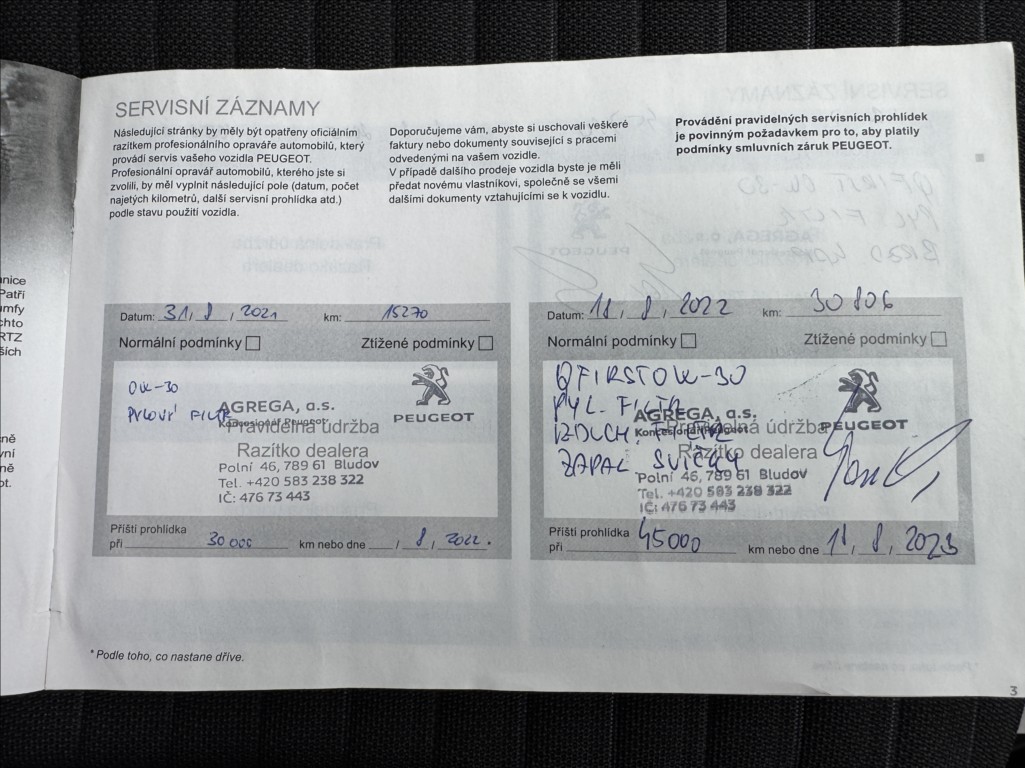 SERVISNÍ ZÁZNAMY
Následující stránky by měly být opatřeny oficiálním
razítkem profesionálního opraváře automobilů, který
provádí servis vašeho vozidla PEUGEOT.
Profesionální opravář automobilů, kterého jste si
zvolili, by měl vyplnit následující pole (datum, počet
najetých kilometrů, další servisní prohlídka atd.)
podle stavu použití vozidla.
Doporučujeme vám, abyste si uschovali veškeré
faktury nebo dokumenty související s pracemi
odvedenými na vašem vozidle.
V případě dalšího prodeje vozidla byste je měli
předat novému vlastníkovi, společně se všemi
dalšími dokumenty vztahujícími se k vozidlu.
Provádění pravidelných servisních prohlídek
je povinným požadavkem pro to, aby platily
podmínky smluvních záruk PEUGEOT.
nice
Patří
mfy
chto
RTZ
ších
ně
vní
ně
ot.
Datum: 31, 8, 2021 km: 15270
Normální podmínky Ztížené podmínky
0W-30
PYLOVÝ FILTR
PEUGEOT
AGREGA, a.s.
Koncesionář Peugeot
Pravidelná údržba
Razítko dealera
Polní 46, 789 61 Bludov
Tel. +420 583 238 322
IČ: 476 73 443
Příští prohlídka
při 30 000 km nebo dne , 8, 2022.
Datum: 11, 8, 2022 km: 30 806
Normální podmínky Ztížené podmínky
QFIRST 0W-30
PYL. FILTR
VZDUCH. FILTR
ZAPAL SVÍČKY
PEUGEOT
AGREGA, a.s.
Koncesionář Peugeot
Pravidelná údržba
Razítko dealera
Polní 46, 789 61 Bludov
Tel. +420 583 238 322
IČ: 476 73 443
Příští prohlídka
při 45000 km nebo dne 11, 8, 2023
* Podle toho, co nastane dříve.
3